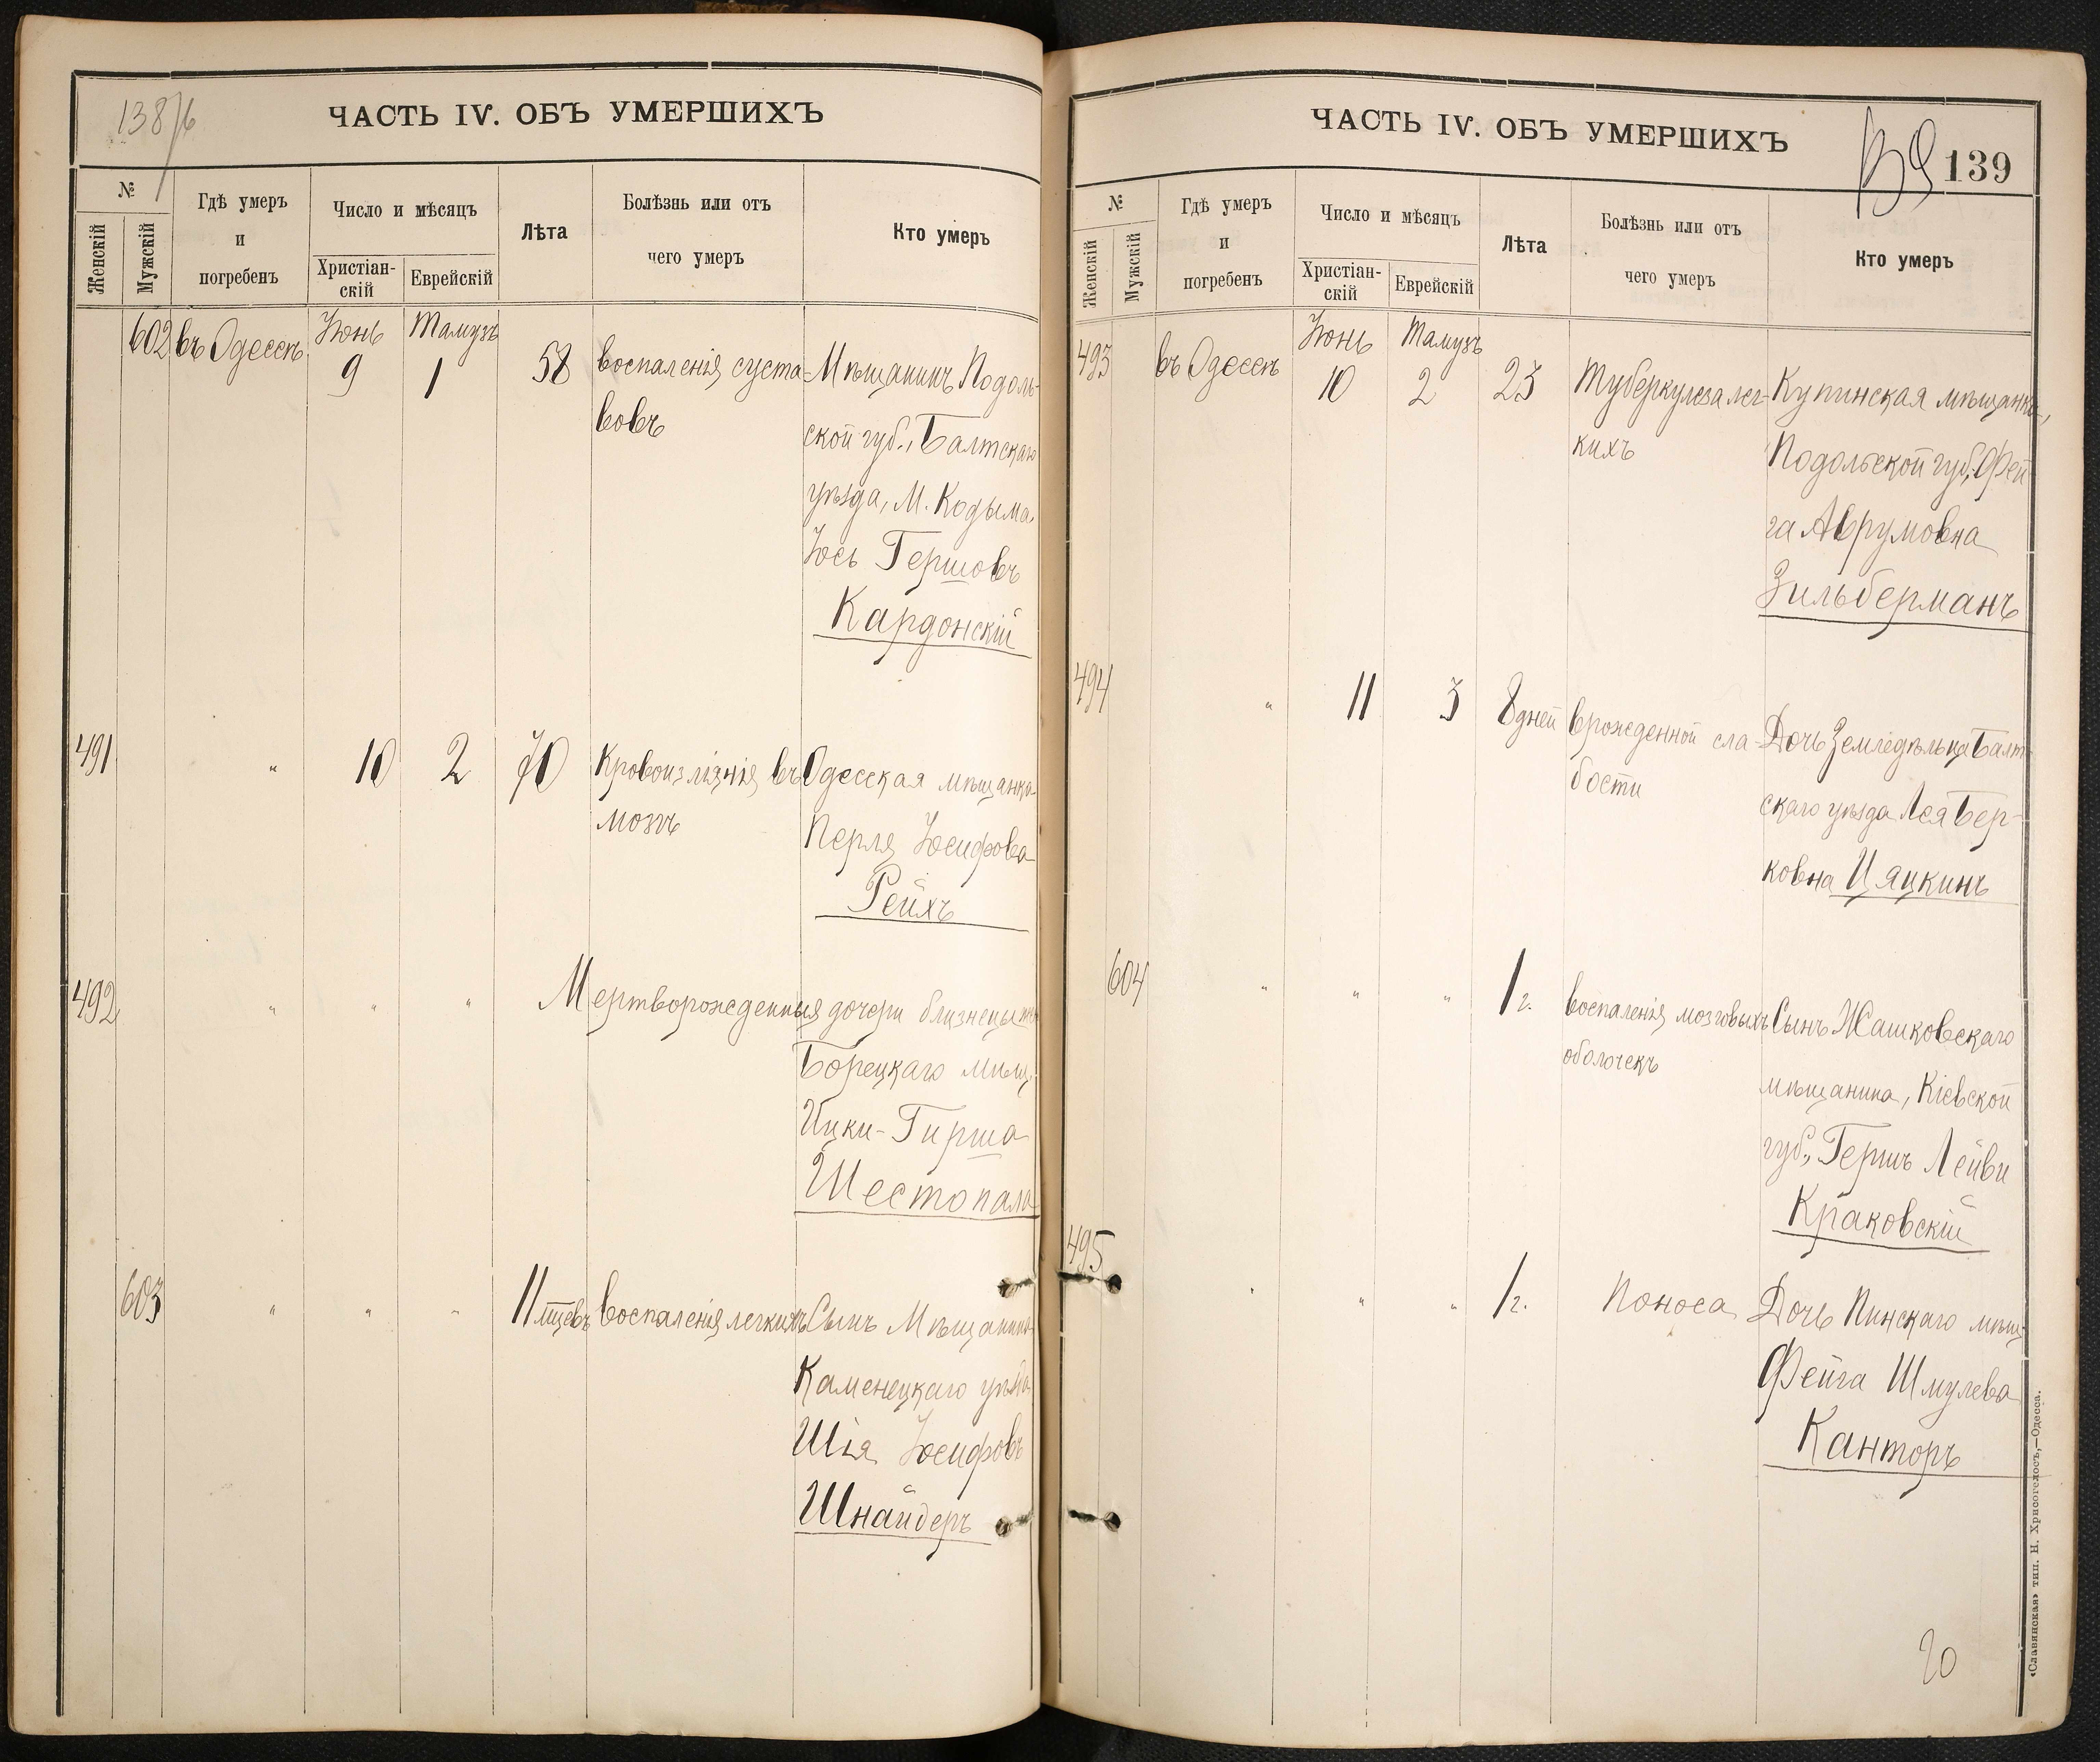 138/6
ЧАСТЬ IV. ОБЪ УМЕРШИХЪ
№
Женскій
Мужскій
Гдѣ умеръ
и
погребенъ
Число и мѣсяцъ
Христіан-
скій
Еврейскій
Лѣта
Болѣзнь или отъ
чего умеръ
Кто умеръ
602 въ Одессѣ Іюнь 9 Тамузъ 1 58 воспаленія суста- Мѣщанинъ Подоль-
вовъ ской губ., Балтскаго
уѣзда, М. Кодыма
Іось Гершовъ
Кардонскій
491 " 10 2 70 Кровоизліянія въ Одесская мѣщанка
мозгъ Перля Іосифова
Рейхъ
492 " " " Мертворожденныя дочери близнецы
Борецкаго мѣщ.
Ицки-Гирша
Шестопала
603 " " " 11 мцевъ воспаленія легкихъ Сынъ Мѣщанина
Каменецкаго уѣзда
Шія Іосифовъ
Шнайдеръ
ЧАСТЬ IV. ОБЪ УМЕРШИХЪ
139
139
№
Женскій
Мужскій
Гдѣ умеръ
и
погребенъ
Число и мѣсяцъ
Христіан-
скій
Еврейскій
Лѣта
Болѣзнь или отъ
чего умеръ
Кто умеръ
493 въ Одессѣ Іюнь 10 Тамузъ 2 23 Туберкулеза лег- Купинская мѣщанка,
кихъ Подольской губ., Фей
га Аврумовна
Зильберманъ
494 " 11 3 8 дней врожденной сла- Дочь Земледѣльца Балт-
бости скаго уѣзда Лея Бер-
ковна Цяцкинъ
604 " " " 1 г. воспаленія мозговыхъ Сынъ Жашковскаго
оболочекъ мѣщанина, Кіевской
губ., Гершъ Лейви
Краковскій
495 " " " 1 г. Поноса Дочь Пинскаго мѣщ.
Фейга Шмулева
Канторъ
20
«Славянская» тип. Н. Хрисогелосъ,—Одесса.